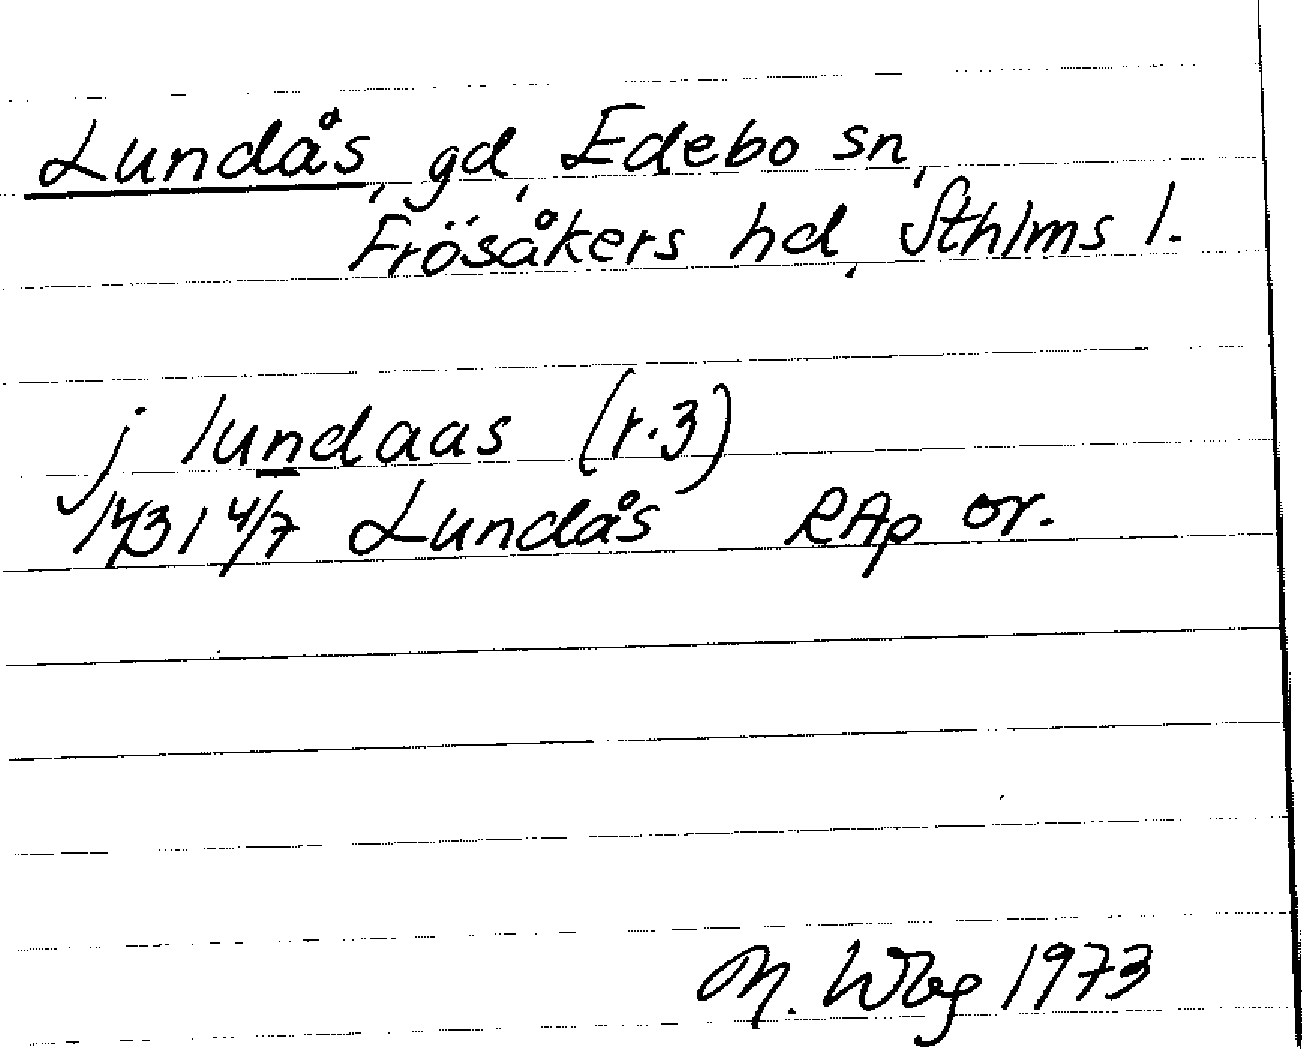 Lundås, gd, Edebo sn,
Frösåkers hd, Sthlms l.
j lundaas (r.3)
1431 4/7 Lundås RAp or.
M. Wbg 1973